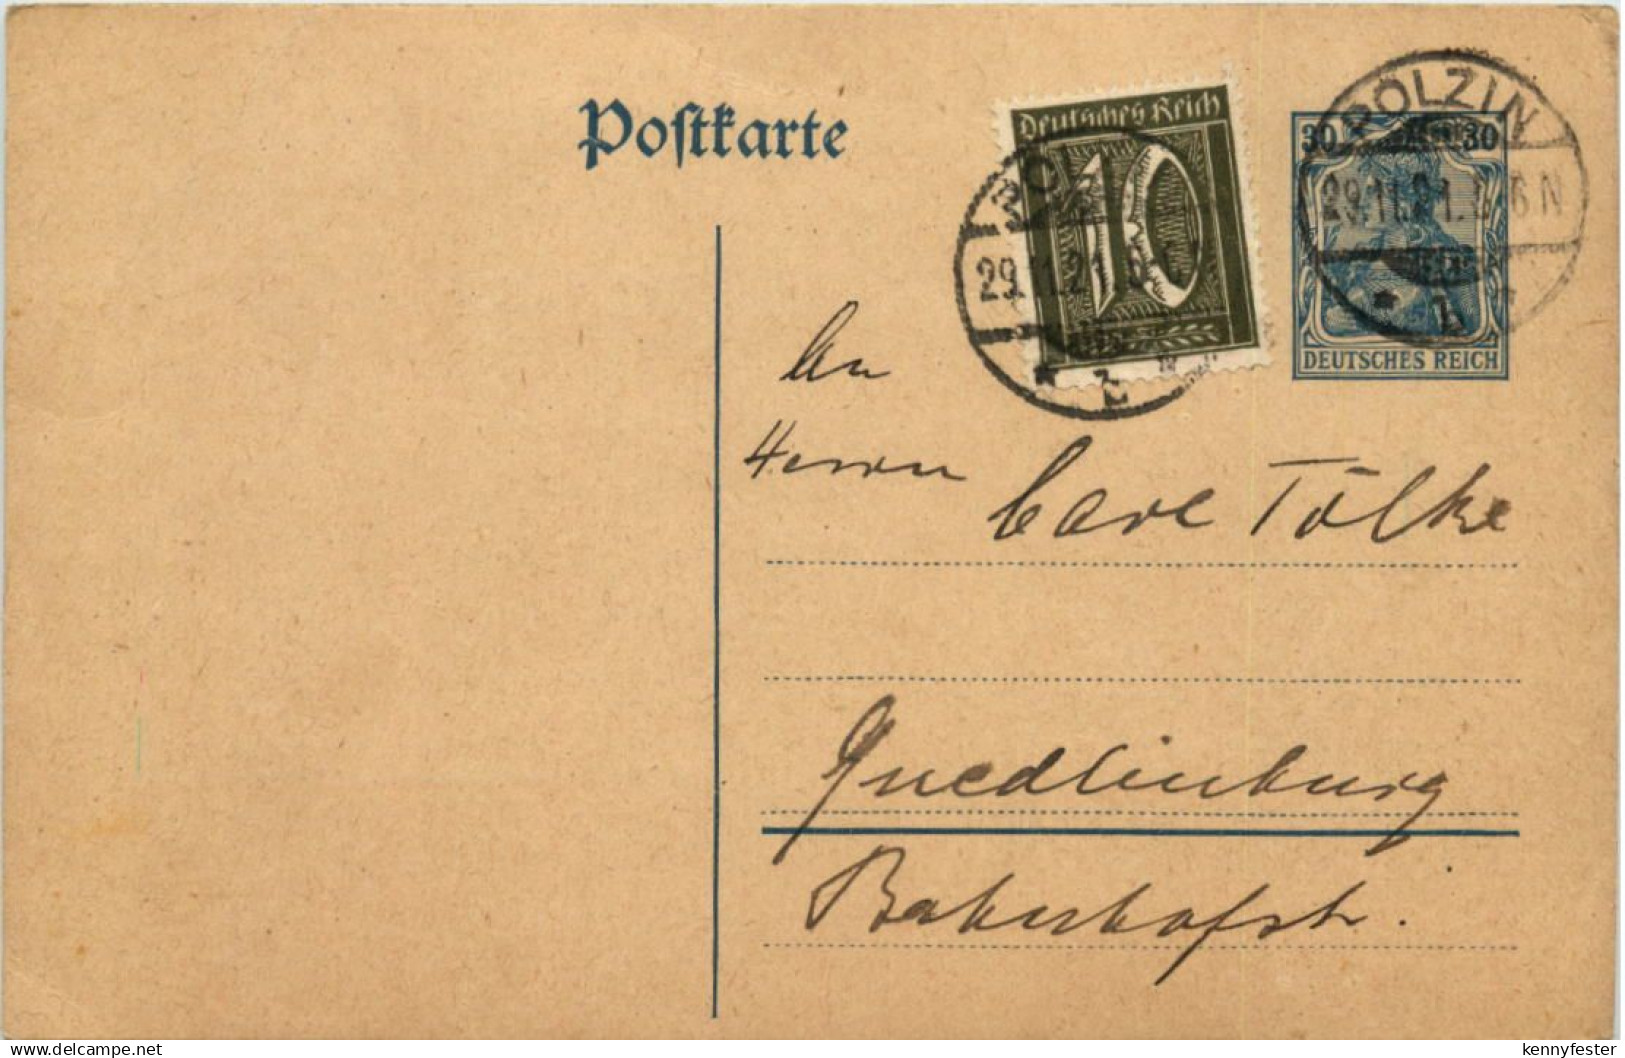 Postkarte
Deutsches Reich
10
30 30
DEUTSCHES REICH
POLZIN
29.11.21. 5-6 N
29.11.21.
An
Herrn Carl Tölke
Quedlinburg
Bahnhofstr.
delcampe.net
kennyfester